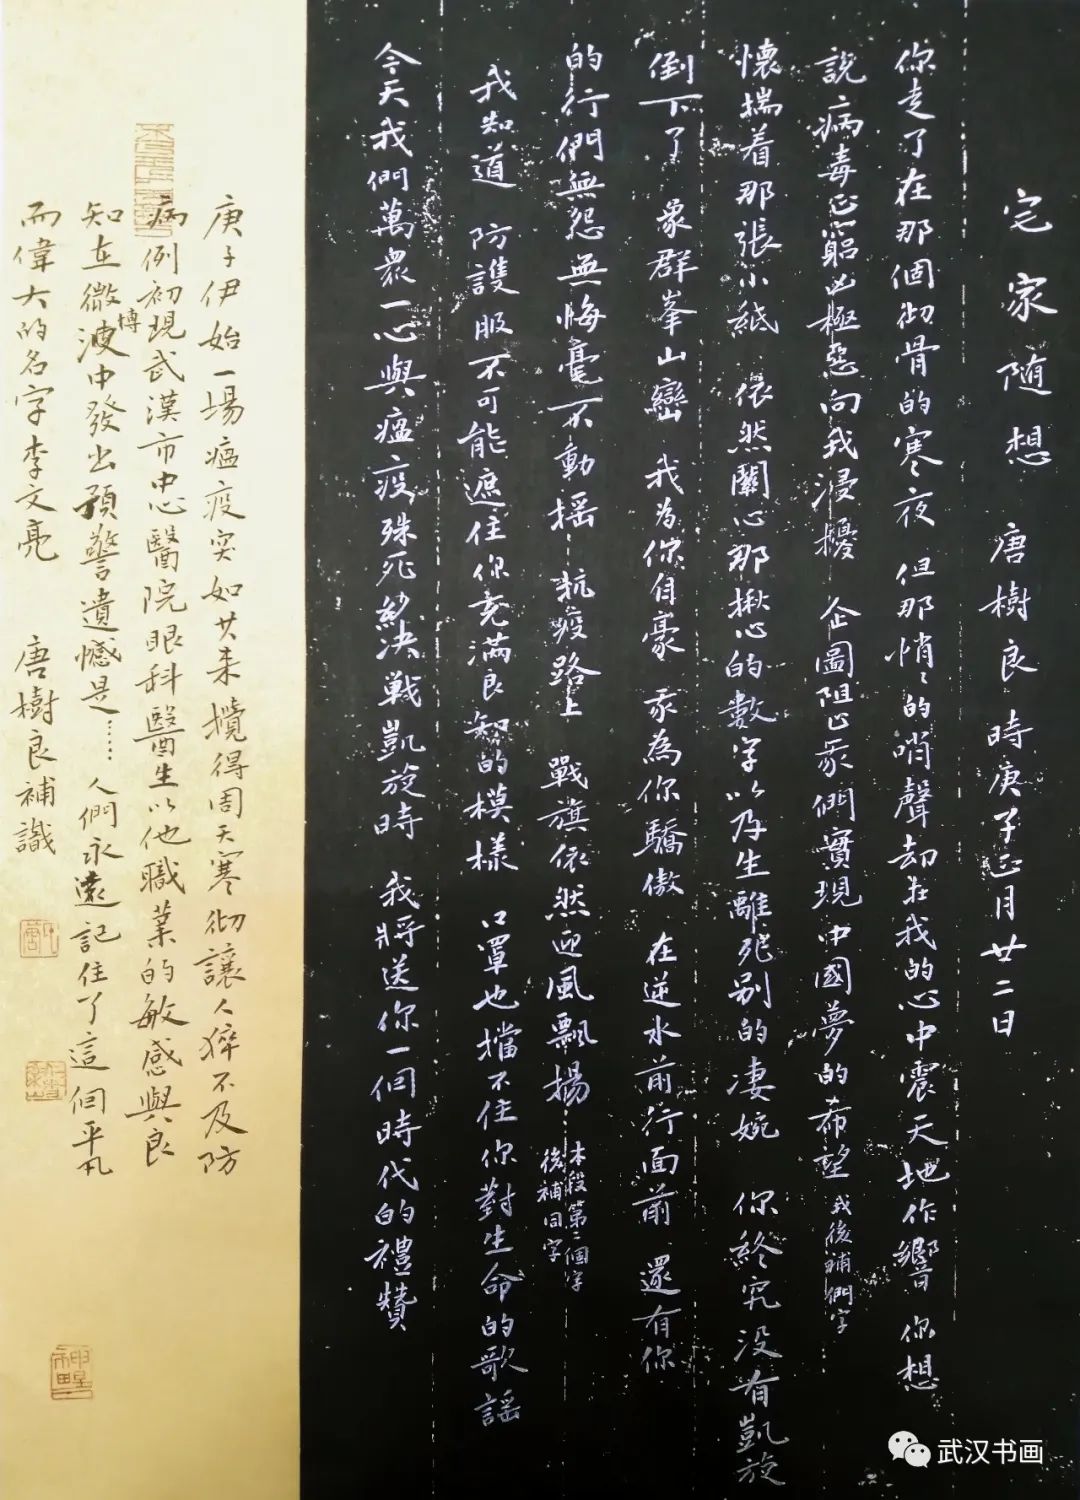 宅家随想 唐樹良 時庚子正月廿二日
你走了在那個彻骨的寒夜 但那悄悄的哨聲却在我的心中震天地作響 你想
說病毒正窮凶極惡向我浸擾 企圖阻止我們實現中國夢的希望 我後補們字……
懷揣着那張小紙 依然關心那揪心的数字以及生離死别的凄婉 你終究没有凱旋
倒下了 象群峯山巒 我为你自豪 我為你驕傲 在逆水前行面前 還有你
的行們無怨無悔毫不動摇…抗疫路上 戰旗依然迎風飄揚… 本段第二個字後補同字
我知道 防護服不可能遮住你充满良知的模樣 口罩也擋不住你對生命的歌謡
今天我們萬衆一心與瘟疫殊死 决戦凱旋時 我将送你一個時代的禮贊
庚子伊始一場瘟疫突如其来攪得周天寒彻讓人猝不及防
病例初現武漢市中心醫院眼科醫生以他職業的敏感與良
知在微博波中發出預警遺憾是……人們永遠記住了這個平凡
而偉大的名字李文亮 唐樹良補識
武汉书画